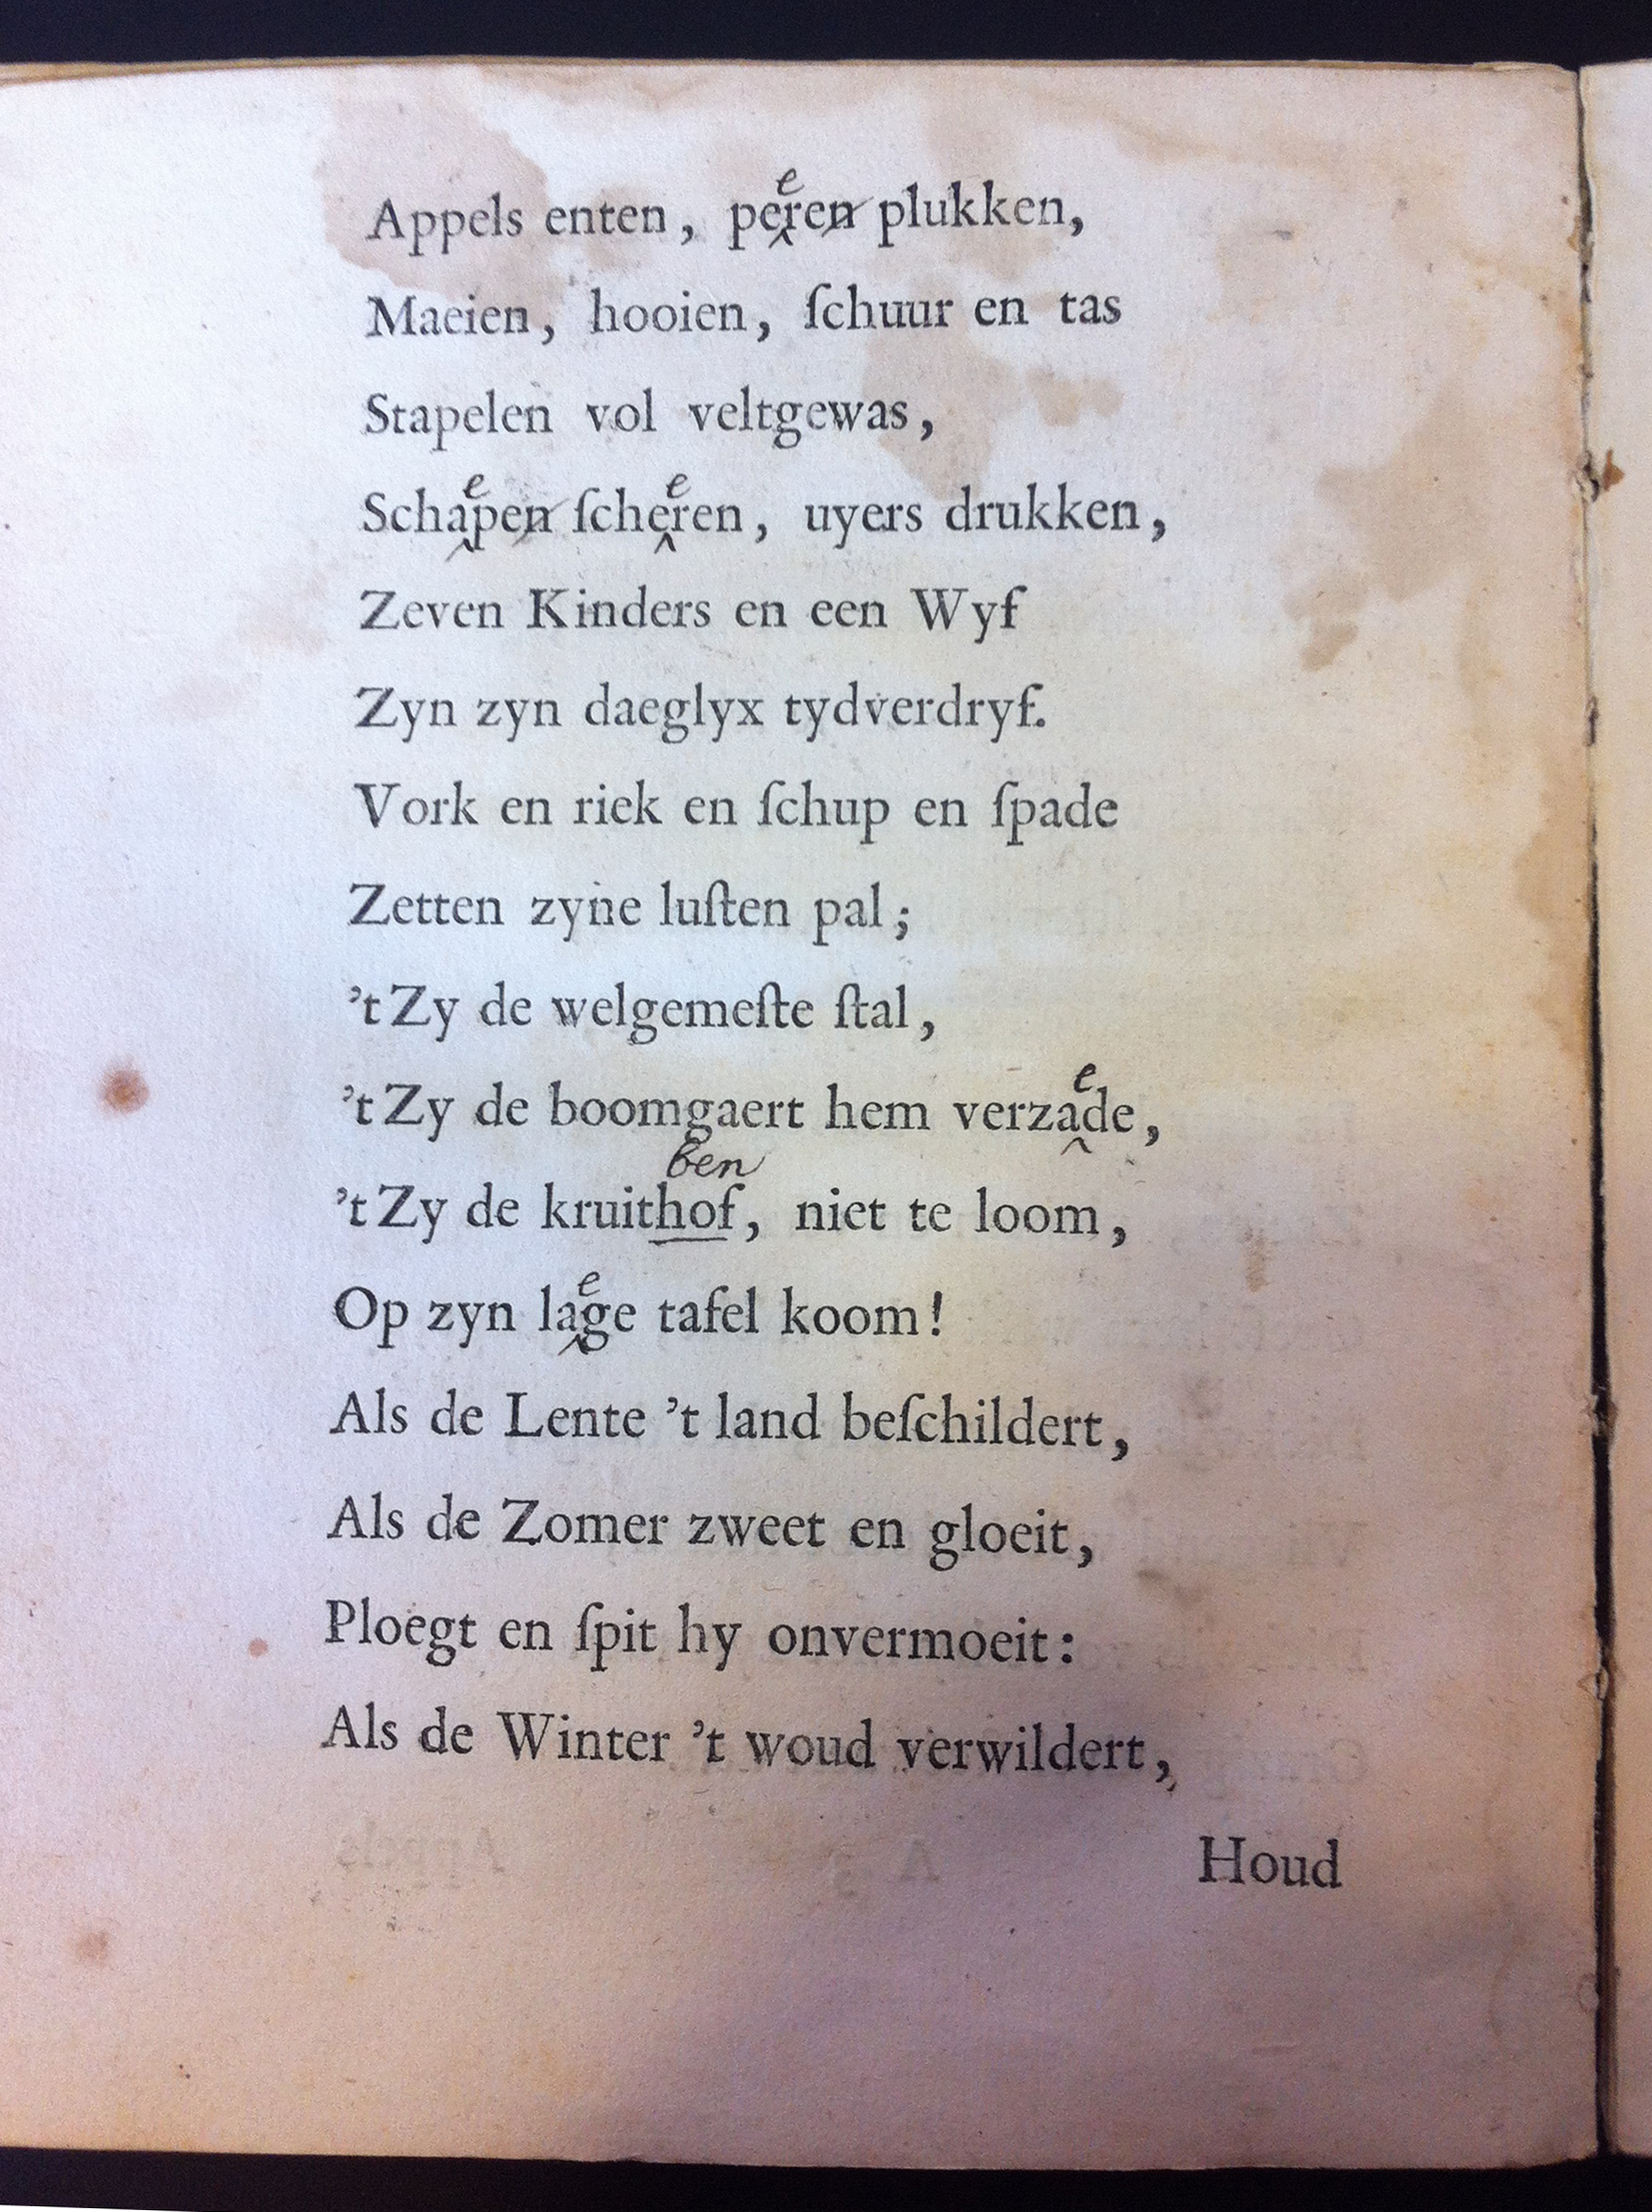 Appels enten, peren plukken,
Maeien, hooien, ſchuur en tas
Stapelen vol veltgewas,
Schapen ſcheren, uyers drukken,
Zeven Kinders en een Wyf
Zyn zyn daeglyx tydverdryf.
Vork en riek en ſchup en ſpade
Zetten zyne luſten pal;
't Zy de welgemeſte ſtal,
't Zy de boomgaert hem verzade,
ben
't Zy de kruithof, niet te loom,
Op zyn lage tafel koom!
Als de Lente 't land beſchildert,
Als de Zomer zweet en gloeit,
Ploegt en ſpit hy onvermoeit:
Als de Winter 't woud verwildert,
Houd